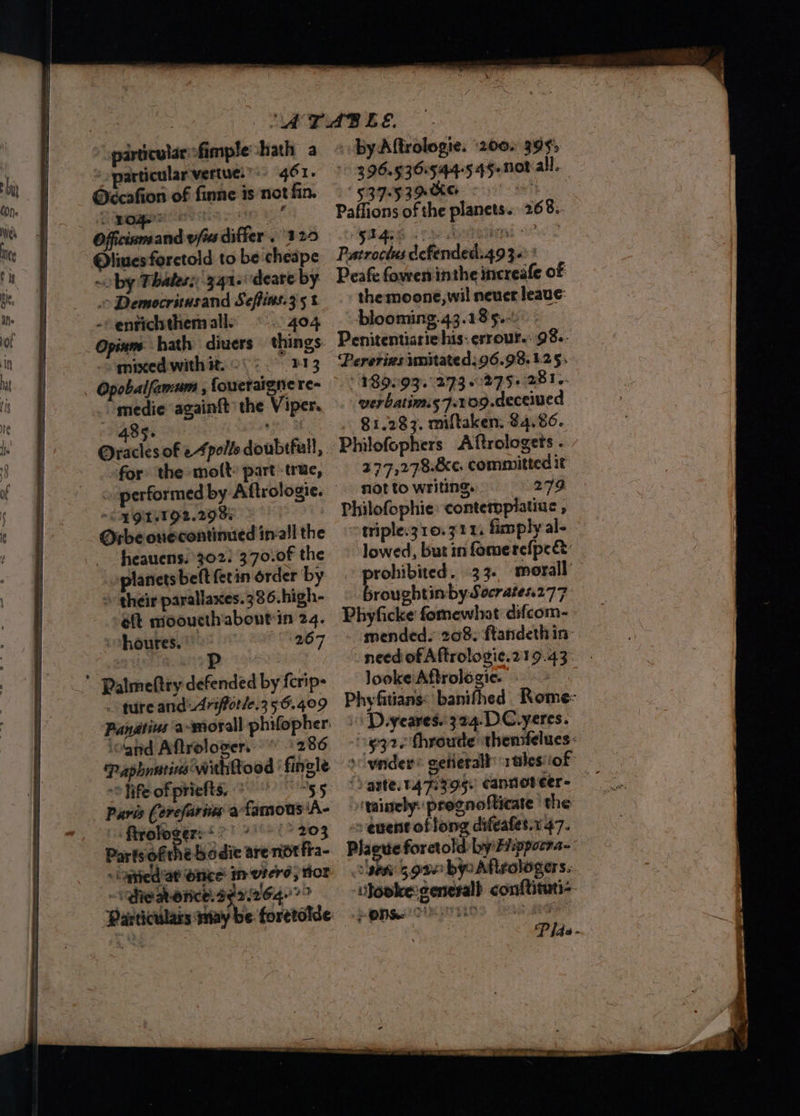 A TABLE.
particular simple hath a
particular vertue. 461.
Occasion of sinne is not sin.
Officiumand vsus differ. 120
Oliues foretold to be cheape
by Thales; 341. deare by
Democritus and Sestius. 351
enrich them all. 404
Opium hath diuers things
mixed with it. 113
Opobalsamum, soueraigne re-
medie against the Viper.
485.
Oracles of Apollo doubtfull,
for the most part true,
performed by Astrologie.
191.192.298.
Orbe one continued in all the
heauens. 302. 370. of the
planets best set in order by
their parallaxes. 386. high-
est mooueth about in 24.
houres. 267
P
Palmestry defended by scrip-
ture and Aristotle. 356.409
Panætius a morall philopher
and Astrologer. 286
Paphnutius withstood single
life of priests. 55
Paris Ceresarius a famous A-
strologer. 203
Parts of the bodie are not fra-
med at once in vtero, nor
die at once. 264.
Particulars may be foretolde
by Astrologie. 200. 395,
396.536.544.545. not all.
537.539.&c
Passions of the planets. 268.
514.
Patroclus defended. 493.
Pease sowen in the increase of
the moone, wil neuer leaue
blooming. 43.185.
Penitentiarie his errour. 98.
Pererius imitated. 96.98.125.
189.93. 273. 275. 281.
verbatim. 57.109. deceiued
81.283. mistaken. 84.86.
Philosophers Astrologers.
277,278.&c. committed it
not to writing. 279
Philosophie contemplatiue,
triple. 310.311. simply al-
lowed, but in some respect
prohibited. 33. morall
brought in by Socrates. 277
Physicke somewhat discom-
mended. 208. standeth in
need of Astrologie. 219.43
looke Astrologie.
Physitians banished Rome
D. yeares. 324. DC. yeres.
532. shroude themselues
vnder generall rules of
arte. 147.395. cannot cer-
tainely prognosticate the
euent of long diseases. 147.
Plague foretold by Hippocra-
tes 592 by Astrologers.
looke generall constituti-
ons.
Plas-